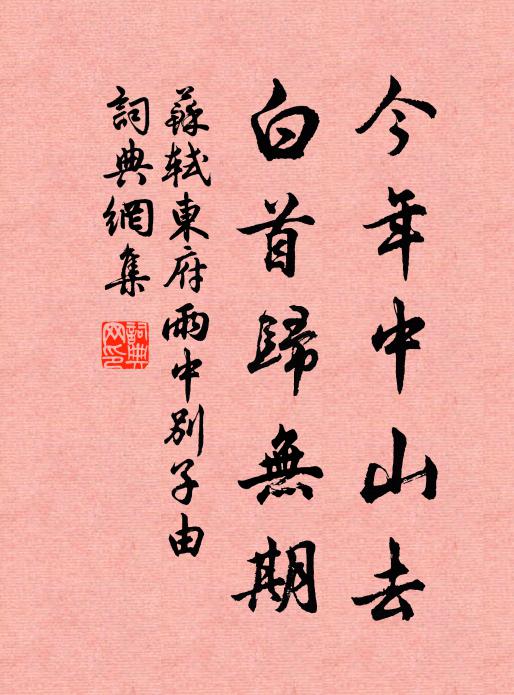 今年中山去
白首歸無期
蘇軾東府雨中別子由
詞典網集
詞典網印